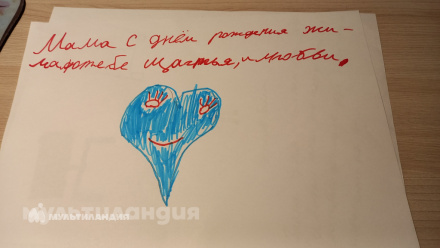 Мама с днём рождения жи-
лаюжебе щастья, и любви.
МУЛЬТИЛАНДИЯ